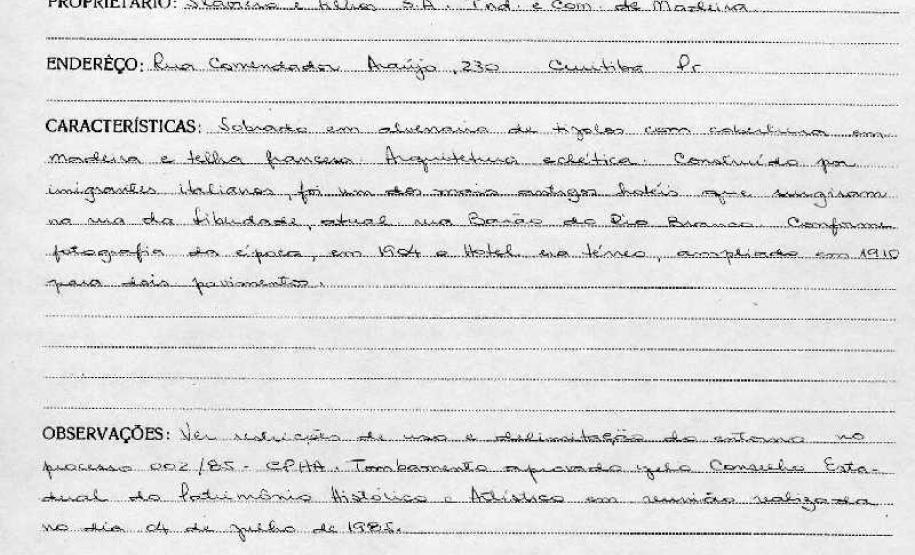 PROPRIETÁRIO: Slaviero e Filhos S.A. Ind. e Com. de Madeira
ENDERÊÇO: Rua Comendador Araújo, 230 Curitiba Pr
CARACTERÍSTICAS: Sobrado em alvenaria de tijolos com cobertura em
madeira e telha francesa. Arquitetura eclética. Construído por
imigrantes italianos, foi um dos mais antigos hotéis que surgiram
na rua da Liberdade, atual rua Barão do Rio Branco. Conforme
fotografia da época, em 1904 o Hotel era térreo, ampliado em 1910
para dois pavimentos.
OBSERVAÇÕES: Ver restrições de uso e delimitação do entorno no
processo 002/85 - CPHA. Tombamento aprovado pelo Conselho Esta-
dual do Patrimônio Histórico e Artístico em reunião realizada
no dia 04 de julho de 1985.